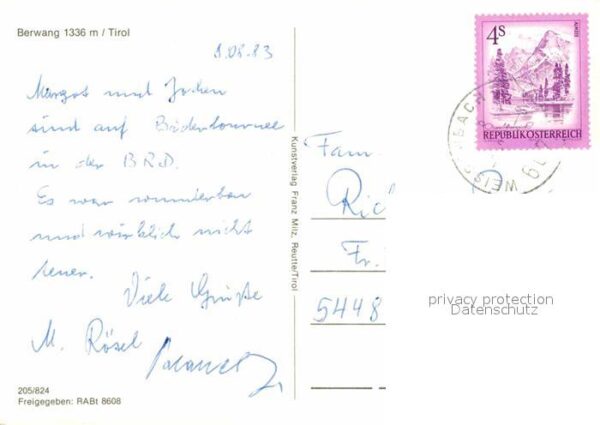 Berwang 1336 m / Tirol
1.08.83
Margot und Jochen
sind auf Bädertournee
in der BRD.
Es war wunderbar
und wirklich nicht
teuer.
Viele Grüße
M. Rösel
205/824
Freigegeben: RABt 8608
Kunstverlag Franz Milz, Reutte/Tirol
4S
ALMSEE
REPUBLIK ÖSTERREICH
Fam.
Fr.
5448
privacy protection
Datenschutz